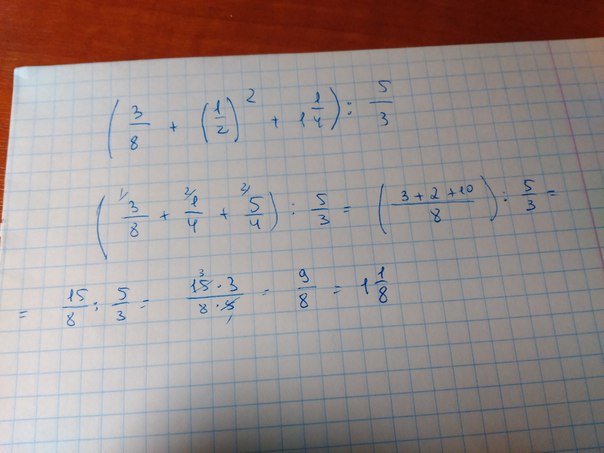 (3/8 + (1/2)^2 + 1 1/4) : 5/3
(3/8 + 1/4 + 5/4) : 5/3 = ((3 + 2 + 10)/8) : 5/3 =
= 15/8 : 5/3 = (15 · 3)/(8 · 5) = 9/8 = 1 1/8